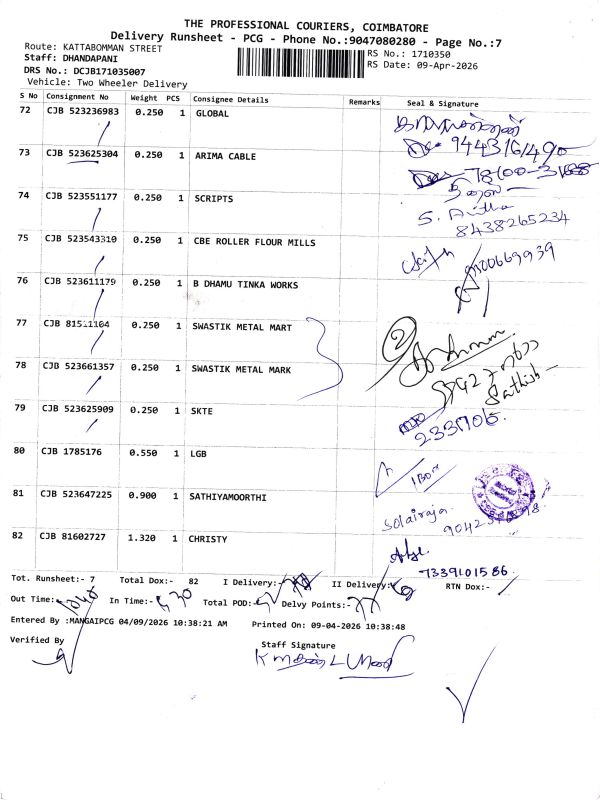 THE PROFESSIONAL COURIERS, COIMBATORE
Delivery Runsheet - PCG - Phone No.:9047080280 - Page No.:7
Route: KATTABOMMAN STREET
RS No.: 1710350
Staff: DHANDAPANI
RS Date: 09-Apr-2026
DRS No.: DCJB171035007
Vehicle: Two Wheeler Delivery
S No Consignment No Weight PCS Consignee Details Remarks Seal & Signature
72 CJB 523236983 0.250 1 GLOBAL
9443161490
73 CJB 523625304 0.250 1 ARIMA CABLE
74 CJB 523551177 0.250 1 SCRIPTS
8438265234
75 CJB 523543310 0.250 1 CBE ROLLER FLOUR MILLS
76 CJB 523611179 0.250 1 B DHAMU TINKA WORKS
77 CJB 81511104 0.250 1 SWASTIK METAL MART
78 CJB 523661357 0.250 1 SWASTIK METAL MARK
Sathish
79 CJB 523625909 0.250 1 SKTE
2331706
80 CJB 1785176 0.550 1 LGB
81 CJB 523647225 0.900 1 SATHIYAMOORTHI
Solairaja
82 CJB 81602727 1.320 1 CHRISTY
7339101586
Tot. Runsheet:- 7 Total Dox:- 82 I Delivery:- II Delivery: RTN Dox:-
Out Time: In Time:- Total POD:- Delvy Points:-
Entered By :MANGAIPCG 04/09/2026 10:38:21 AM Printed On: 09-04-2026 10:38:48
Verified By
Staff Signature